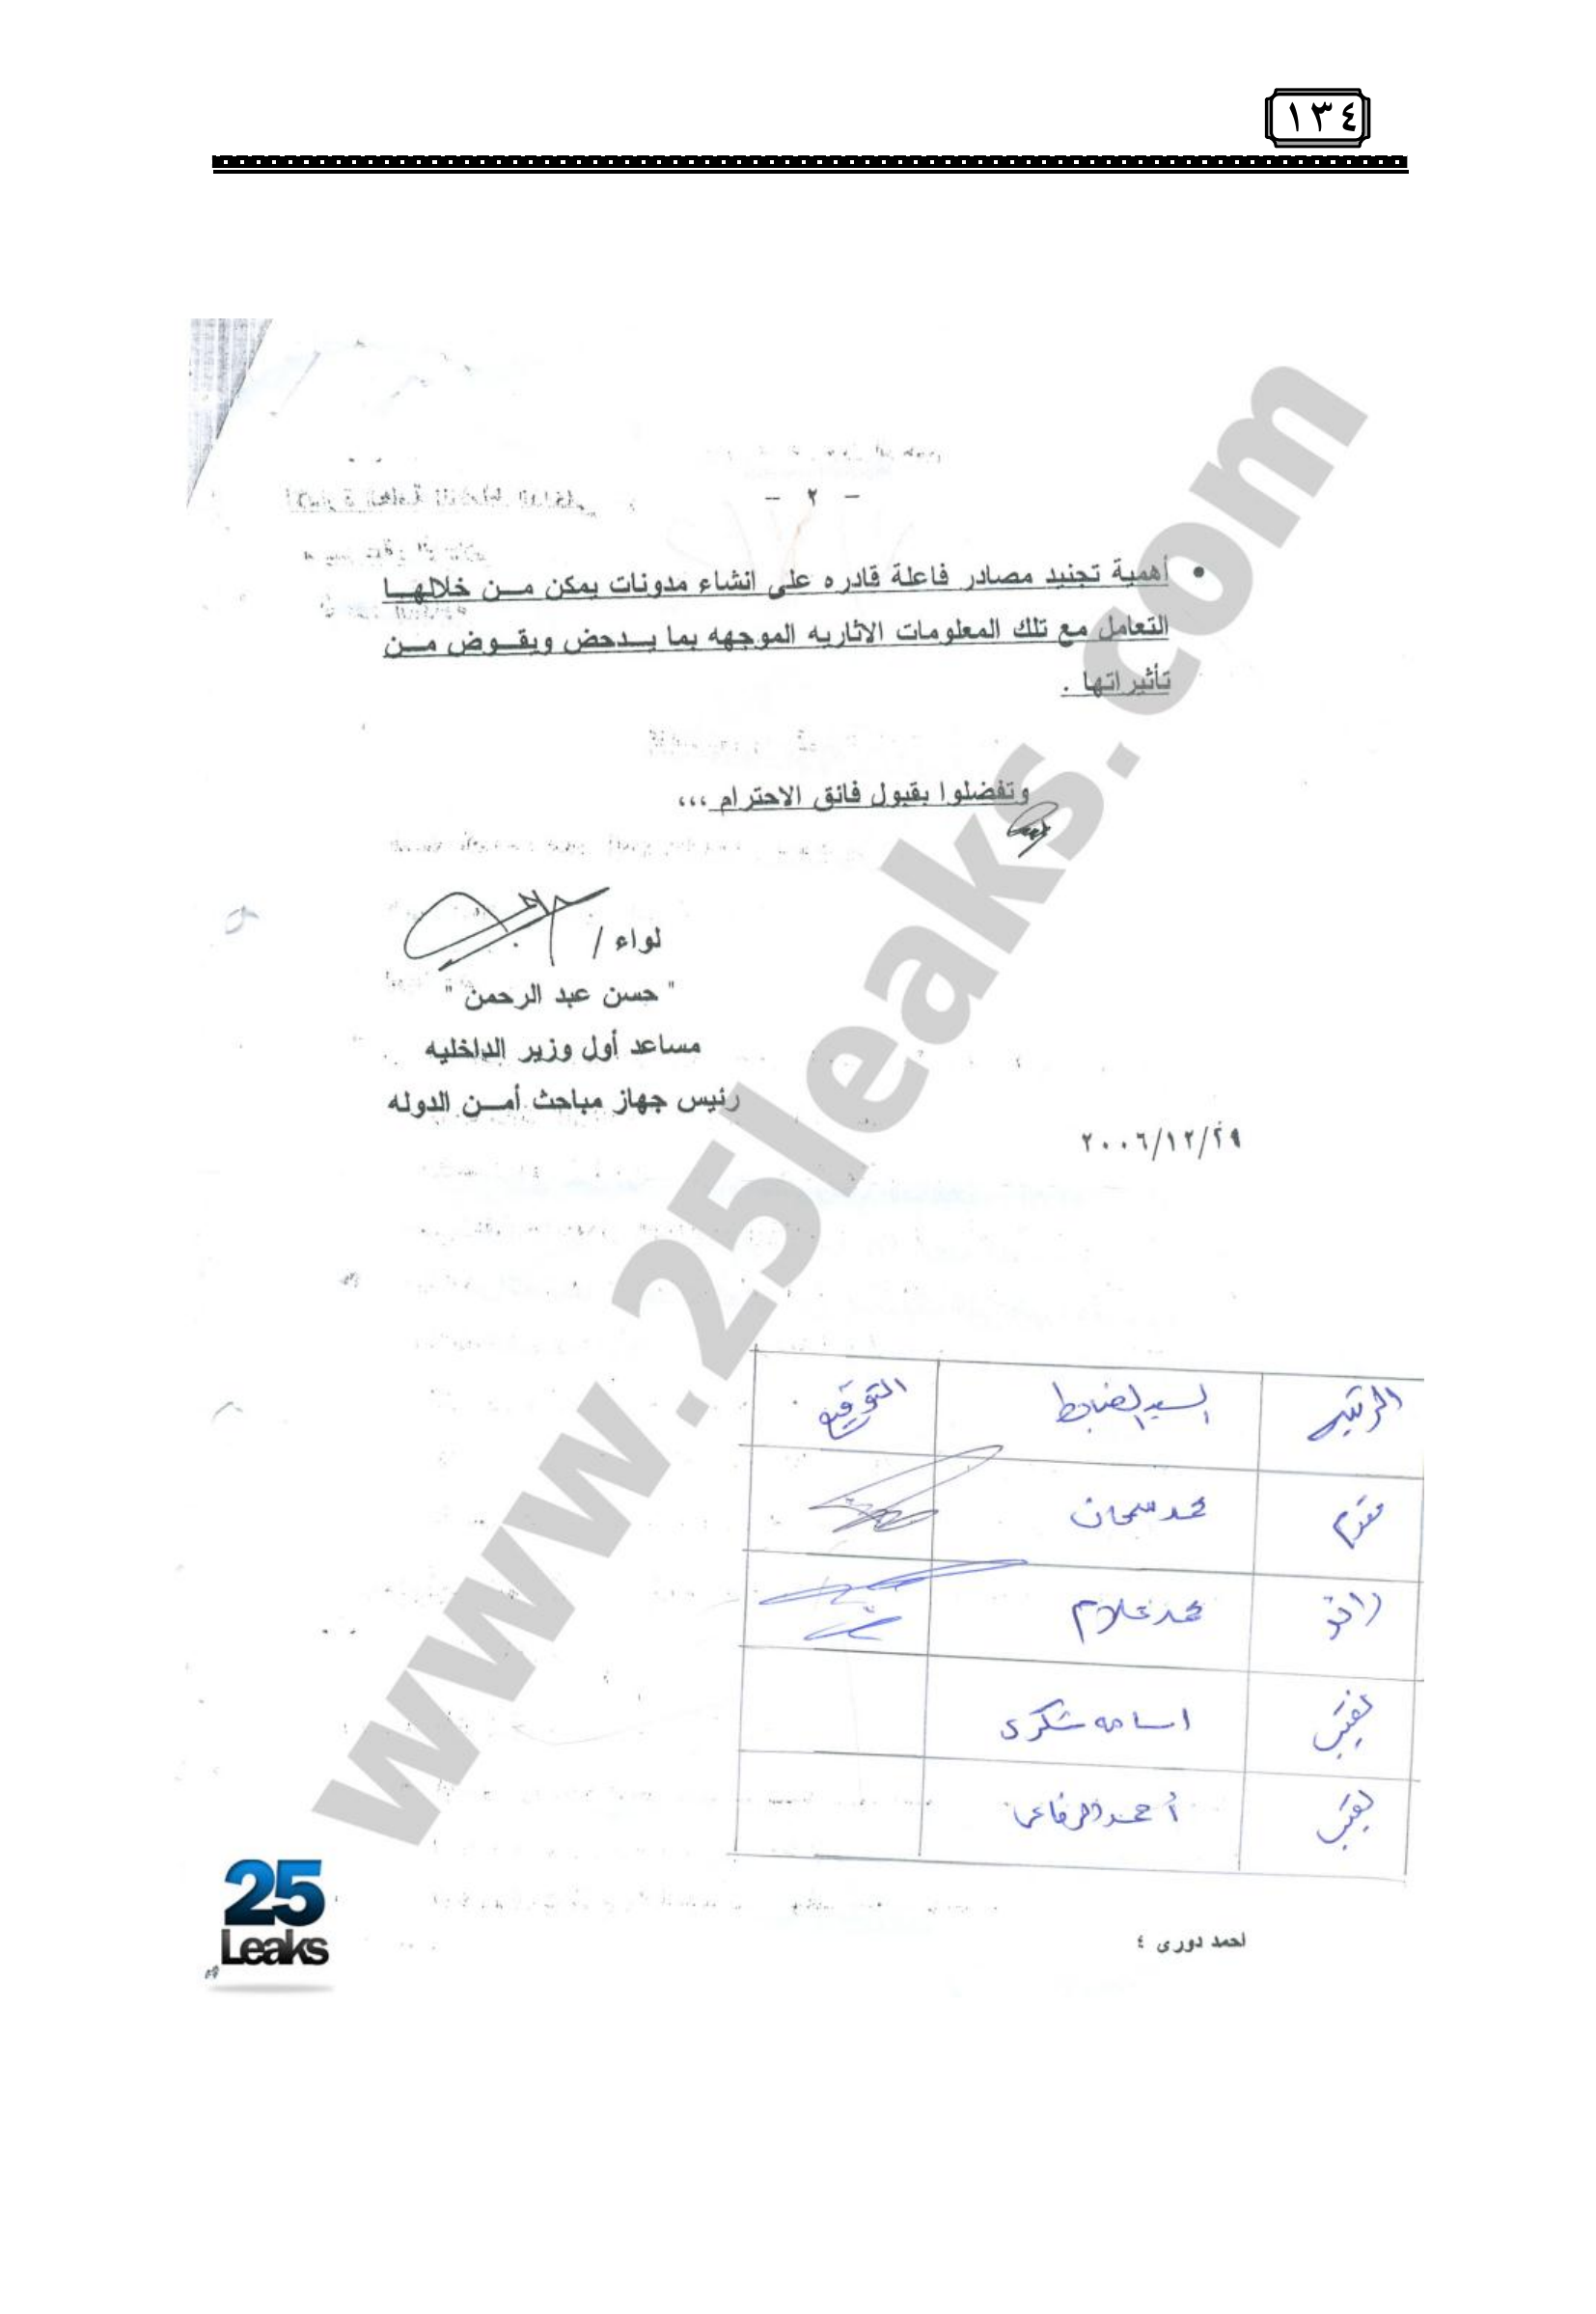 ١٣٤
- ٢ -
• أهمية تجنيد مصادر فاعلة قادره على انشاء مدونات يمكن مـن خلالهـا
التعامل مع تلك المعلومات الاثاريه الموجهه بما يـدحض ويقـوض مـن
تأثيراتها .
وتفضلوا بقبول فائق الاحترام ،،،
لواء /
" حسن عبد الرحمن "
مساعد أول وزير الداخليه
رئيس جهاز مباحث أمـن الدوله
٢٠٠٦/١٢/٢٩
الرتبه السيد الضابط التوقيع
مقدم محمد
رائد محمد علام
نقيب اسامه شكرى
نقيب أحمد الرفاعى
احمد دورى ٤
www.25leaks.com
25
Leaks